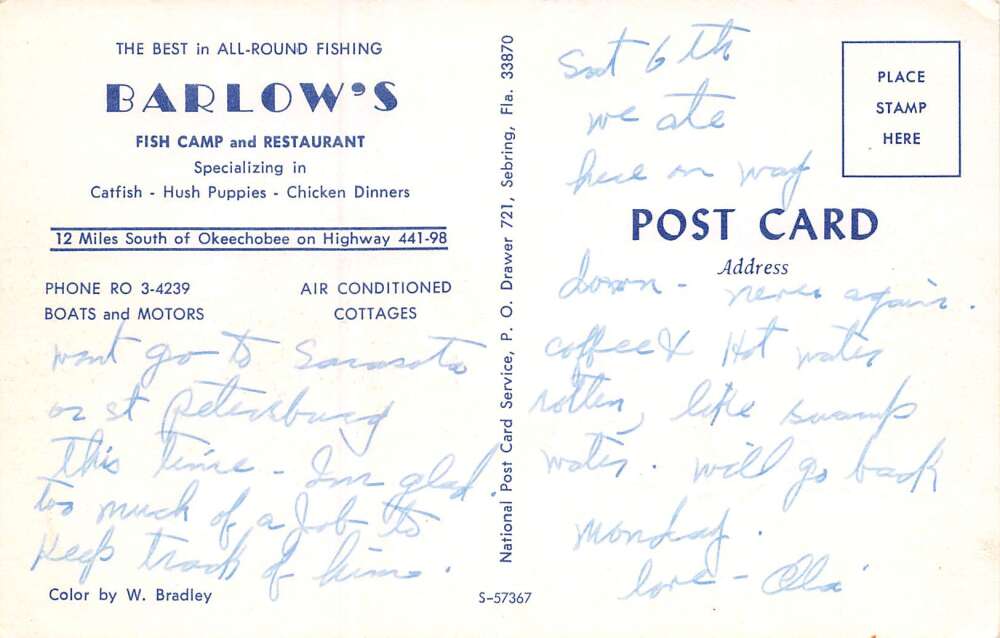 THE BEST in ALL-ROUND FISHING
BARLOW'S
FISH CAMP and RESTAURANT
Specializing in
Catfish - Hush Puppies - Chicken Dinners
12 Miles South of Okeechobee on Highway 441-98
PHONE RO 3-4239
AIR CONDITIONED
BOATS and MOTORS
COTTAGES
want go to Sarasota
or st Petersburg
this time - I'm glad.
too much of a Job to
Keep track of him.
Color by W. Bradley
National Post Card Service, P. O. Drawer 721, Sebring, Fla. 33870
S-57367
PLACE
STAMP
HERE
POST CARD
Address
Sat 6th
we ate
here on way
down - never again.
coffee & Hot water
rotten, like swamp
water. will go back
monday.
love -